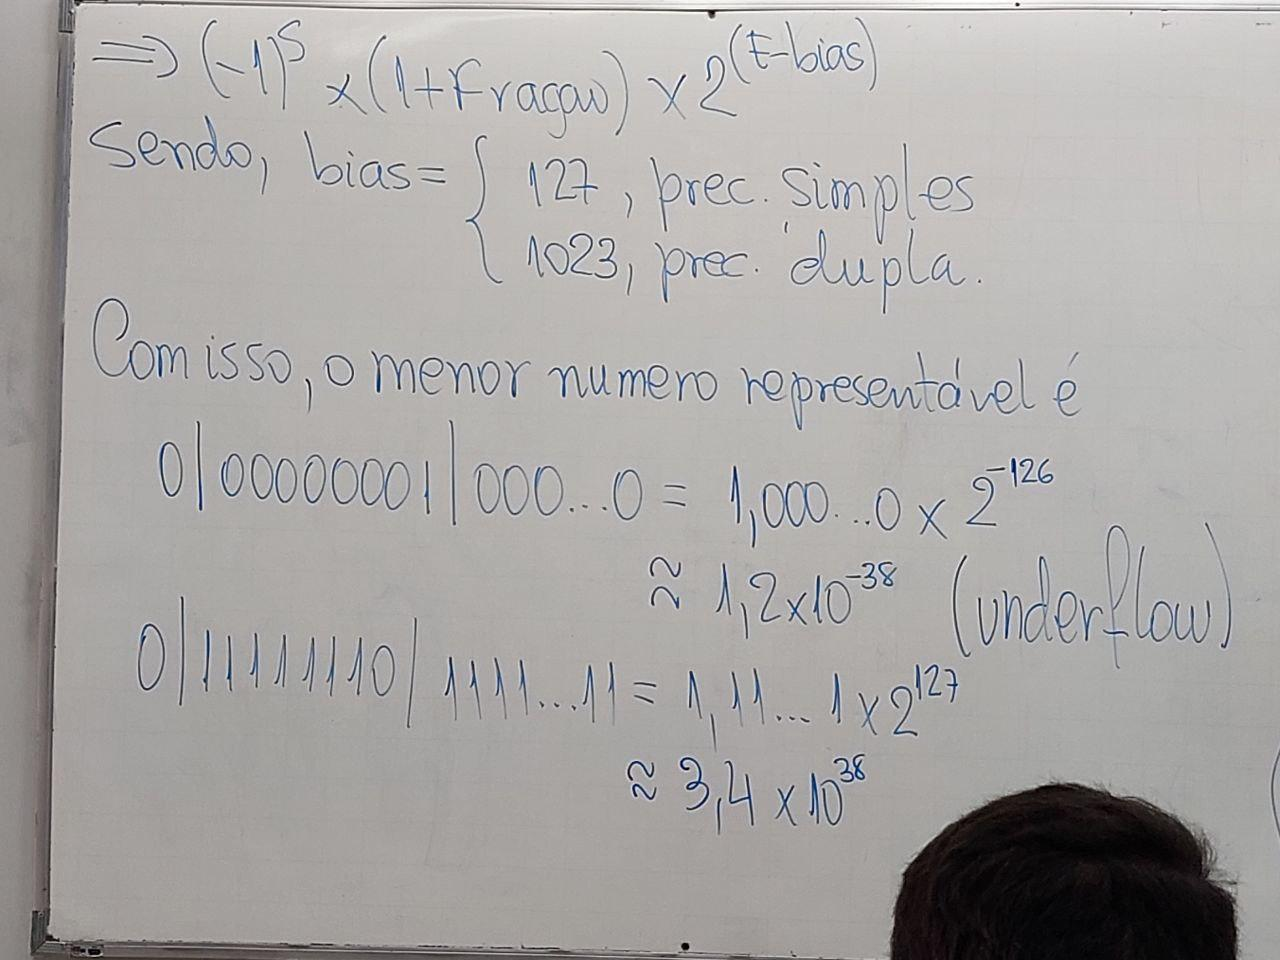 ⇒ (-1)^S × (1+Fração) × 2^(E-bias)
Sendo, bias = { 127, prec. simples
1023, prec. dupla.
Com isso, o menor numero representável é
0|00000001|000...0 = 1,000...0 × 2^-126
≈ 1,2×10^-38 (underflow)
0|11111110|1111...11 = 1,11...1 × 2^127
≈ 3,4 × 10^38